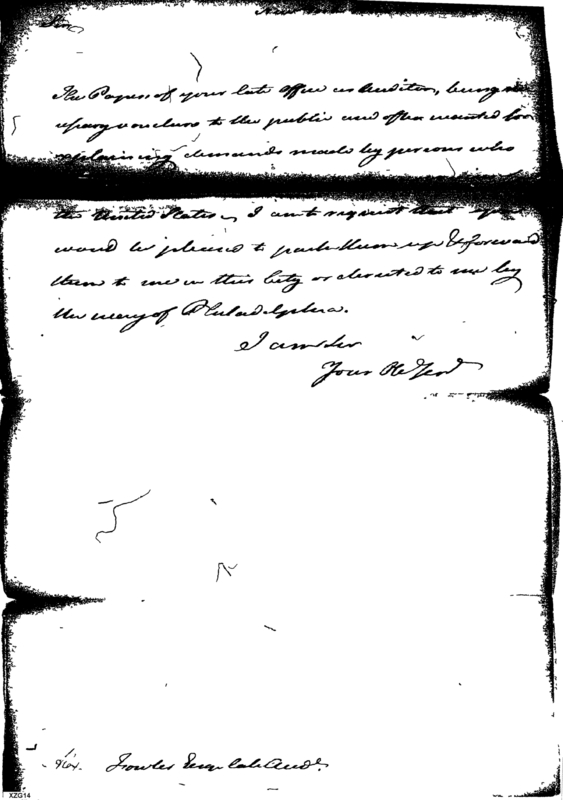 Sir
The Papers of your late Office as Auditor, being
vouchers to the public and often wanted for
explaining demands made by persons who
the United States, I am to request that you
would be pleased to pack them up & forward
them to me in this City or directed to me by
the way of Philadelphia.
I am Sir
Your
Fowler Esqr late Audr.
XZG14